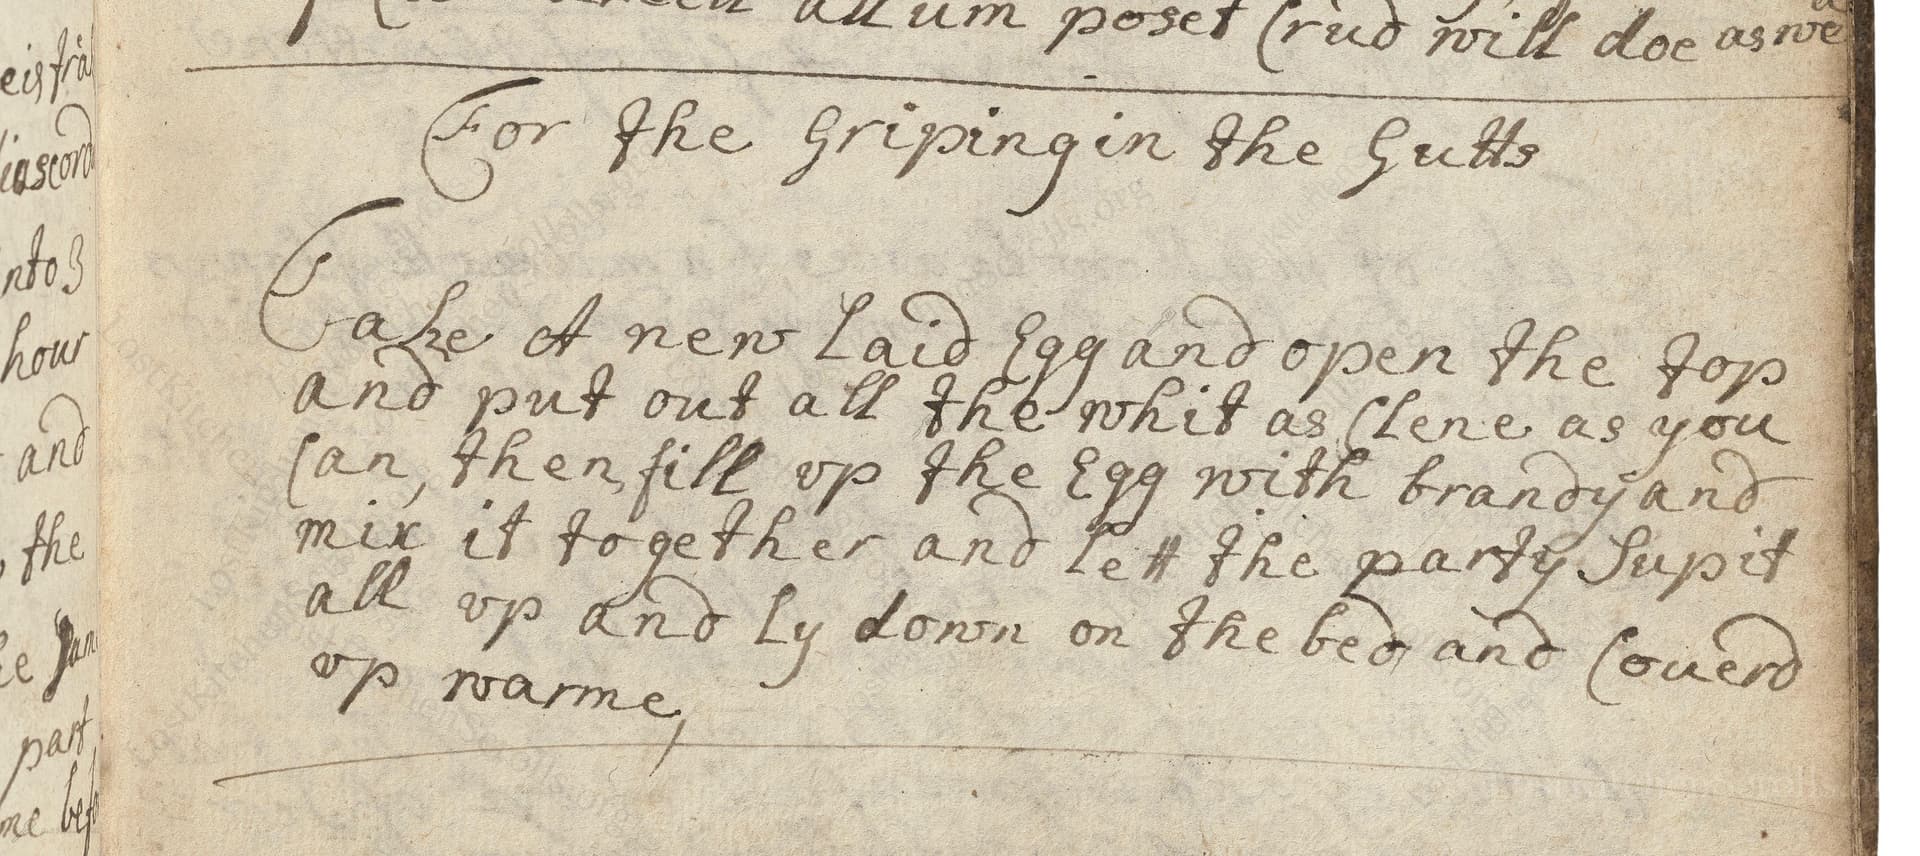 allum poset Crud will doe as we
For the Griping in the Gutts
Take A new Laid Egg and open the top
and put out all the whit as Clene as you
Can, then fill vp the Egg with brandy and
mix it together and lett the party Sup it
all vp and Ly down on the bed and Couerd
vp warme,
nto 3
hour
and
, the
part